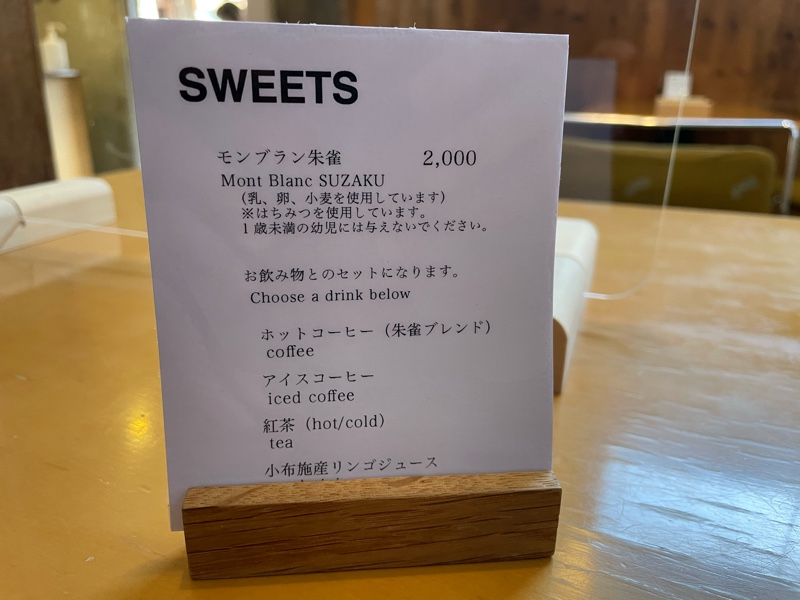 SWEETS
モンブラン朱雀 2,000
Mont Blanc SUZAKU
（乳、卵、小麦を使用しています）
※はちみつを使用しています。
１歳未満の幼児には与えないでください。
お飲み物とのセットになります。
Choose a drink below
ホットコーヒー（朱雀ブレンド）
coffee
アイスコーヒー
iced coffee
紅茶（hot/cold）
tea
小布施産リンゴジュース